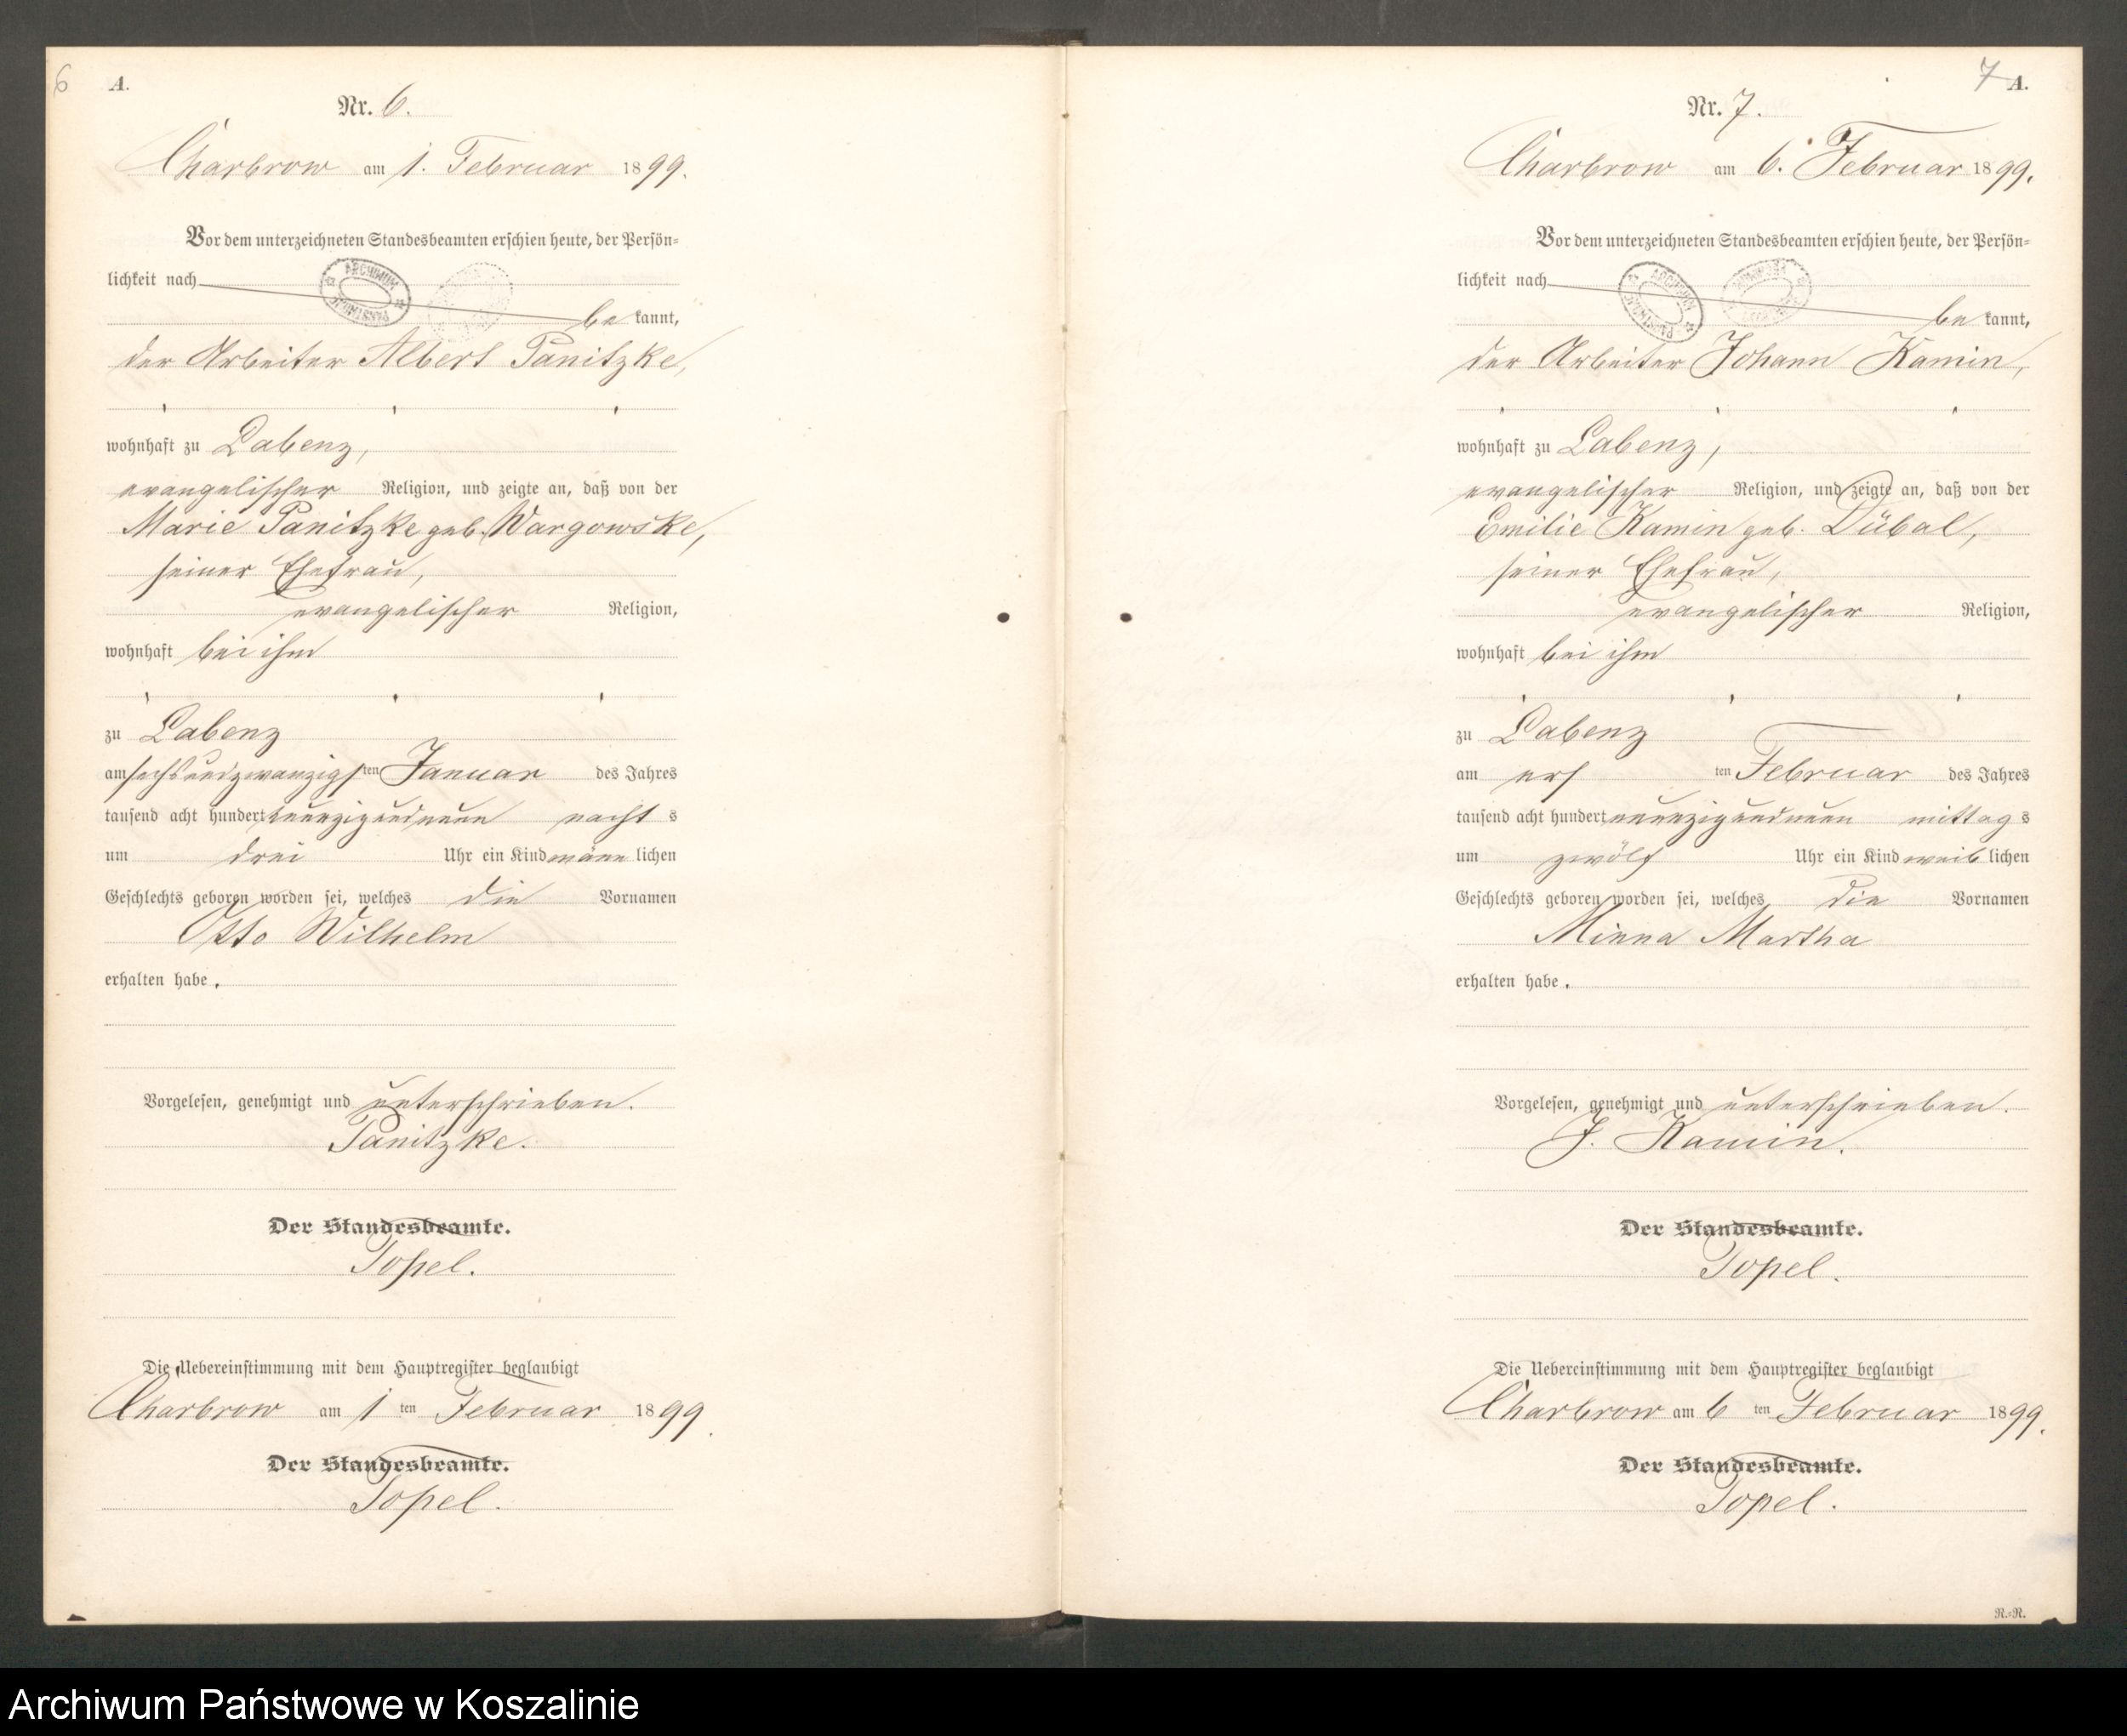 6
A.
Nr. 6.
Charbrow am 1. Februar 1899.
Vor dem unterzeichneten Standesbeamten erschien heute, der Persön-
lichkeit nach
be kannt,
der Arbeiter Albert Panitzke,
wohnhaft zu Labenz,
evangelischer Religion, und zeigte an, daß von der
Marie Panitzke geb. Wargowske,
seiner Ehefrau,
evangelischer Religion,
wohnhaft bei ihm
zu Labenz
am sechsundzwanzigsten Januar des Jahres
tausend acht hundert neunzigundneun nacht s
um drei Uhr ein Kind männ lichen
Geschlechts geboren worden sei, welches die Vornamen
Otto Wilhelm
erhalten habe.
Vorgelesen, genehmigt und unterschrieben.
Panitzke.
Der Standesbeamte.
Topel.
Die Uebereinstimmung mit dem Hauptregister beglaubigt
Charbrow am 1 ten Februar 1899.
Der Standesbeamte.
Topel.
7
A.
Nr. 7.
Charbrow am 6. Februar 1899.
Vor dem unterzeichneten Standesbeamten erschien heute, der Persön-
lichkeit nach
be kannt,
der Arbeiter Johann Kamin,
wohnhaft zu Labenz,
evangelischer Religion, und zeigte an, daß von der
Emilie Kamin geb. Dübal,
seiner Ehefrau,
evangelischer Religion,
wohnhaft bei ihm
zu Labenz
am ers ten Februar des Jahres
tausend acht hundert neunzigundneun mittag s
um zwölf Uhr ein Kind weib lichen
Geschlechts geboren worden sei, welches die Vornamen
Minna Martha
erhalten habe.
Vorgelesen, genehmigt und unterschrieben.
J. Kamin.
Der Standesbeamte.
Topel.
Die Uebereinstimmung mit dem Hauptregister beglaubigt
Charbrow am 6 ten Februar 1899.
Der Standesbeamte.
Topel.
R.=R.
Archiwum Państwowe w Koszalinie